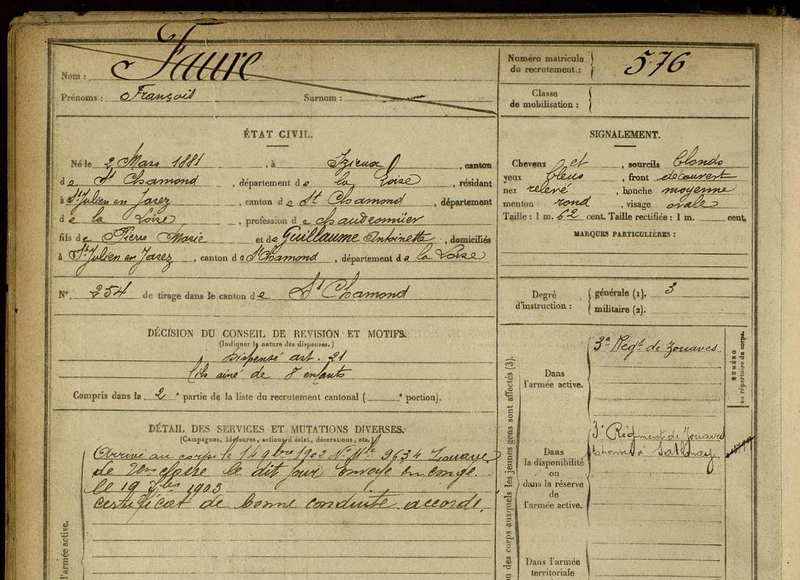 Nom : Faure
Prénoms : François Surnom :
Numéro matricule du recrutement : 576
Classe de mobilisation :
ÉTAT CIVIL.
Né le 2 Mars 1881, à Izieux, canton
de St Chamond, département de la Loire, résidant
à St Julien en Jarez, canton de St Chamond, département
de la Loire, profession de chaudronnier
fils de Pierre Marie et de Guillaume Antoinette, domiciliés
à St Julien en Jarez, canton de St Chamond, département de la Loire
N° 254 de tirage dans le canton de St Chamond
SIGNALEMENT.
Cheveux et, sourcils blonds
yeux bleus, front découvert
nez relevé, bouche moyenne
menton rond, visage ovale
Taille : 1 m. 62 cent. Taille rectifiée : 1 m. cent.
MARQUES PARTICULIÈRES :
Degré d'instruction : générale (1). 3
militaire (2).
DÉCISION DU CONSEIL DE REVISION ET MOTIFS.
(Indiquer la nature des dispenses.)
Dispensé art. 21
fils aîné de 8 enfants
Compris dans la 2e partie de la liste du recrutement cantonal ( e portion).
DÉTAIL DES SERVICES ET MUTATIONS DIVERSES.
(Campagnes, blessures, actions d'éclat, décorations, etc.)
Arrivé au corps le 14 9bre 1902 No Mle 9634 Zouave
de 2me classe le dit jour Envoyé en congé
le 19 7bre 1903
certificat de bonne conduite accordé.
Dans l'armée active.
3e Regt de Zouaves
NUMÉRO au répertoire du corps.
Dans la disponibilité ou dans la réserve de l'armée active.
3e Régiment de Zouaves
à Sathonay
Dans l'armée territoriale
on des corps auxquels les jeunes gens sont affectés (3).
l'armée active.